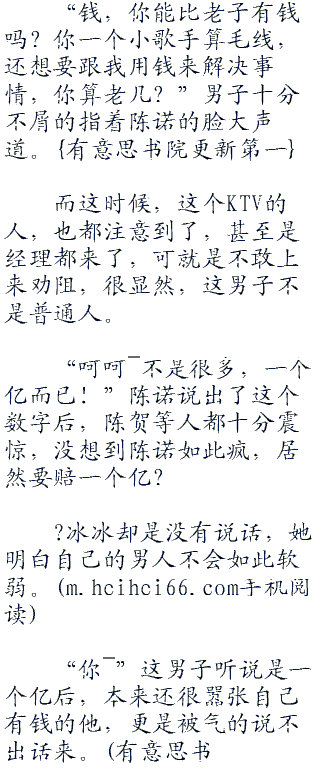 “钱，你能比老子有钱
吗？你一个小歌手算毛线，
还想要跟我用钱来解决事
情，你算老几？”男子十分
不屑的指着陈诺的脸大声
道。{有意思书院更新第一}
而这时候，这个KTV的
人，也都注意到了，甚至是
经理都来了，可就是不敢上
来劝阻，很显然，这男子不
是普通人。
“呵呵¯不是很多，一个
亿而已！”陈诺说出了这个
数字后，陈贺等人都十分震
惊，没想到陈诺如此疯，居
然要赔一个亿？
?冰冰却是没有说话，她
明白自己的男人不会如此软
弱。(m.hcihci66.com手机阅
读)
“你¯”这男子听说是一
个亿后，本来还很嚣张自己
有钱的他，更是被气的说不
出话来。(有意思书